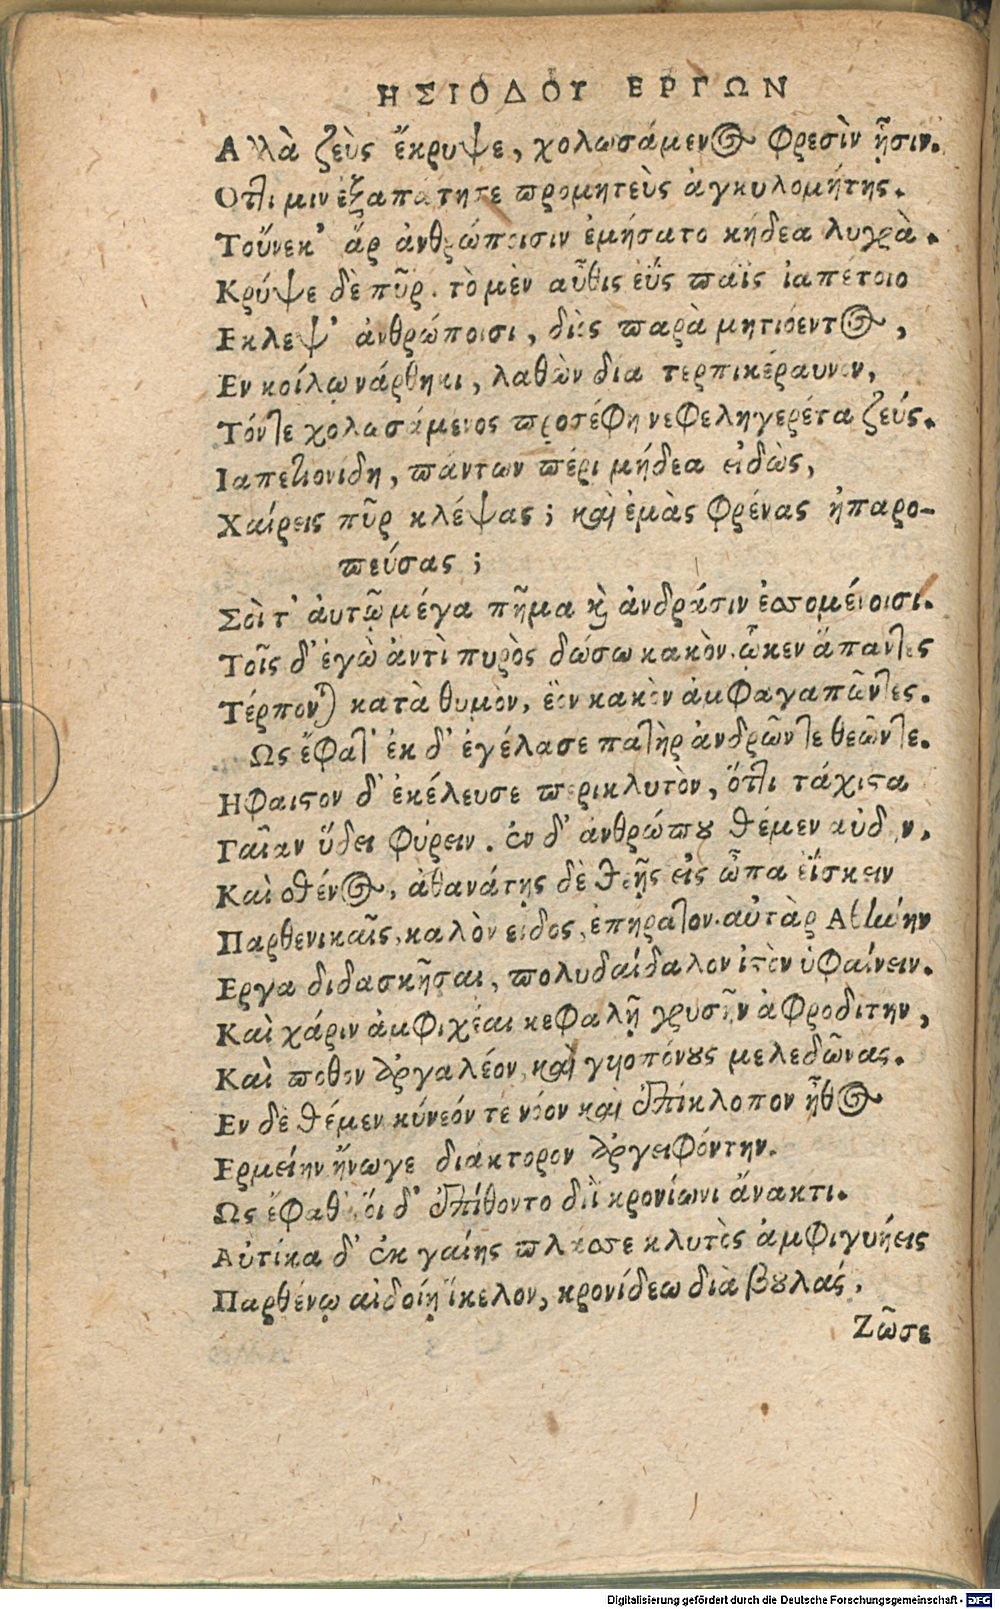 ΗΣΙΟΔΟΥ ΕΡΓΩΝ
Αλλὰ ζεὺς ἔκρυψε, χολωσάμενος φρεσὶν ᾗσιν.
Οτι μιν ἐξαπάτησε προμητεὺς ἀγκυλομήτης.
Τούνεκ' ἄρ ἀνθρώποισιν ἐμήσατο κήδεα λυγρὰ.
Κρύψε δὲ πῦρ. τὸ μὲν αὖθις ἐῢς παῒς ἰαπέτοιο
Εκλεψ' ἀνθρώποισι, διὸς παρὰ μητιόεντος,
Εν κοίλῳ νάρθηκι, λαθὼν δία τερπικέραυνον,
Τόντε χολωσάμενος προσέφη νεφεληγερέτα ζεύς.
Ιαπετιονίδη, πάντων πέρι μήδεα εἰδὼς,
Χαίρεις πῦρ κλέψας; καὶ ἐμὰς φρένας ἠπερο-
πεύσας;
Σοὶ τ' ἀυτῷ μέγα πῆμα καὶ ἀνδράσιν ἐσσομένοισι.
Τοῖς δ' ἐγὼ ἀντὶ πυρὸς δώσω κακὸν. ᾧ κεν ἅπαντες
Τέρπονται κατὰ θυμὸν, ἑὸν κακὸν ἀμφαγαπῶντες.
Ως ἔφατ' ἐκ δ' ἐγέλασε πατὴρ ἀνδρῶν τε θεῶν τε.
Ηφαιστον δ' ἐκέλευσε περικλυτὸν, ὅττι τάχιστα
Γαῖαν ὕδει φύρειν. ἐν δ' ἀνθρώπου θέμεν αὐδὴν,
Καὶ σθένος, ἀθανάτῃς δὲ θεῇς εἰς ὦπα ἐΐσκειν
Παρθενικαῖς, καλὸν εἶδος, ἐπήρατον. αὐτὰρ Αθήνην
Εργα διδασκῆσαι, πολυδαίδαλον ἱστὸν ὑφαίνειν.
Καὶ χάριν ἀμφιχέαι κεφαλῇ χρυσῆν ἀφροδίτην,
Καὶ πόθον ἀργαλέον, καὶ γυιοπόνους μελεδῶνας.
Εν δὲ θέμεν κύνεόν τε νόον καὶ ἐπίκλοπον ἦθος
Ερμείην ἤνωγε διάκτορον ἀργειφόντην.
Ως ἔφαθ' οἱ δ' ἐπίθοντο διῒ κρονίωνι ἄνακτι.
Αὐτίκα δ' ἐκ γαίης πλάσσε κλυτὸς ἀμφιγυήεις
Παρθένῳ αἰδοίῃ ἴκελον, κρονίδεω διὰ βουλάς.
Ζῶσε
Digitalisierung gefördert durch die Deutsche Forschungsgemeinschaft - DFG